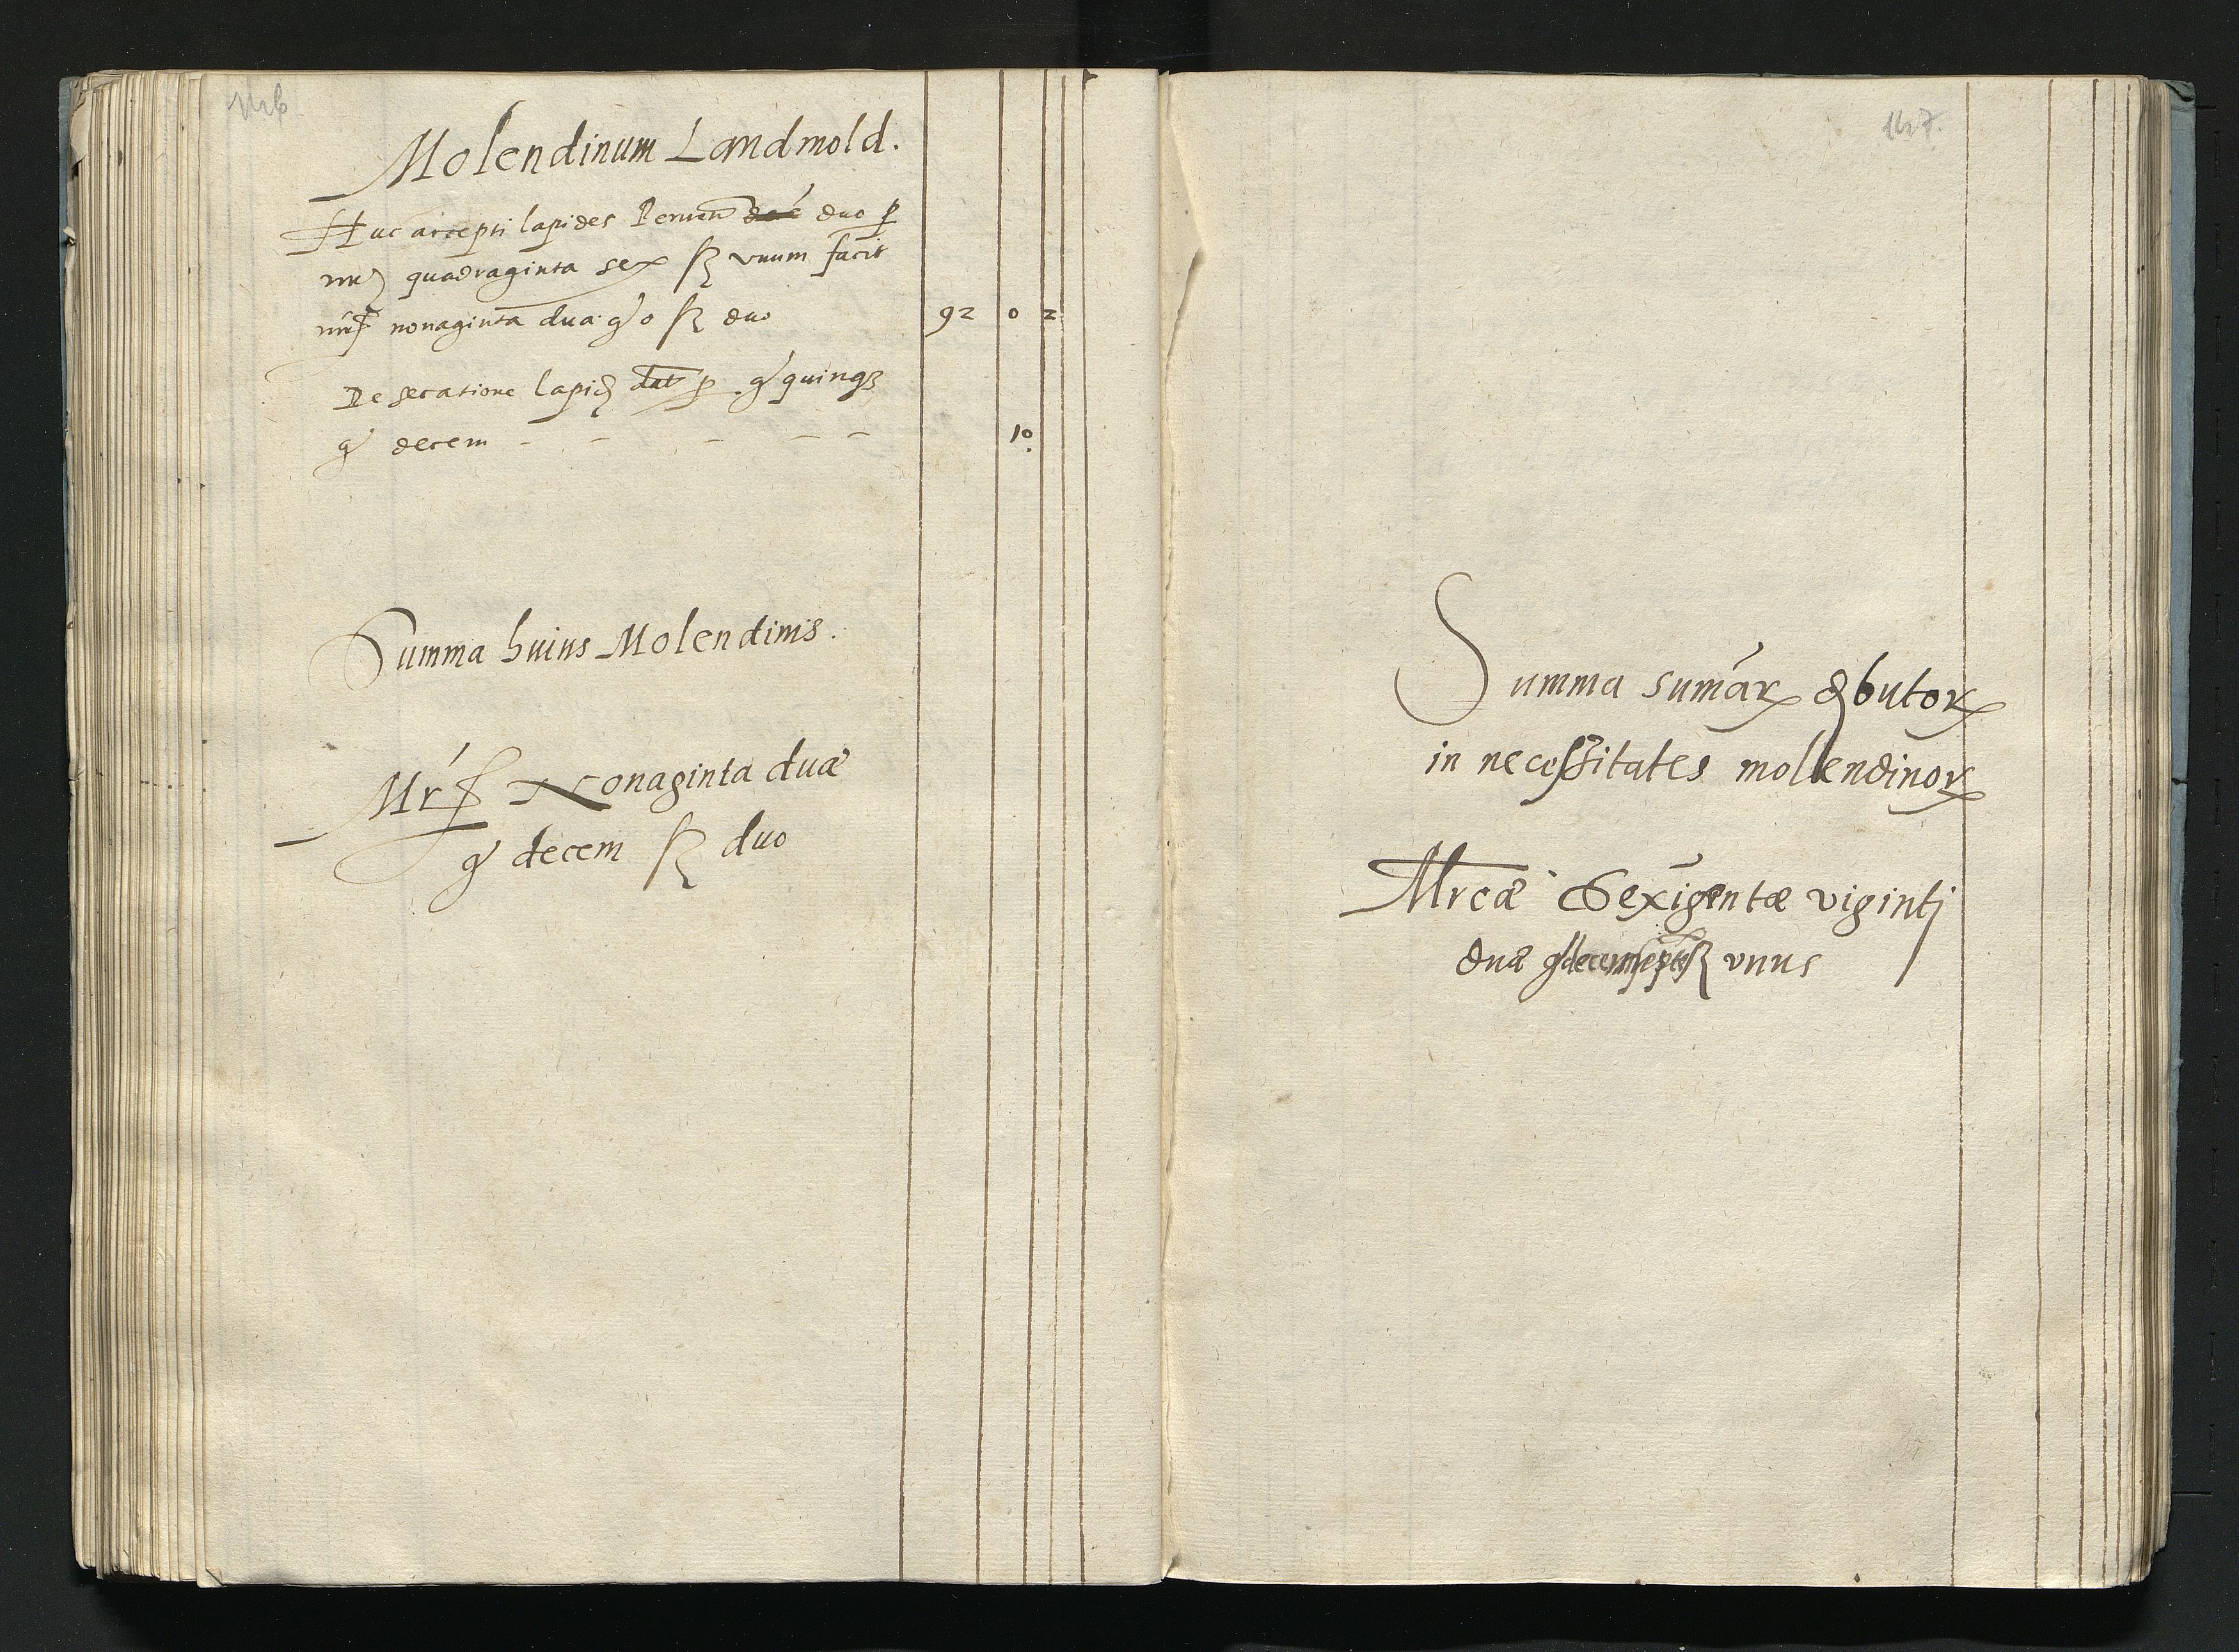 146
Molendinum Landmold.
Huc accepti lapides duo p
quadraginta sex ß vnum facit
mrͨ nonaginta dua g o ß duo 92 0 2
De secatione lapid dat p g quinqȝ
g decem - - - - - 10
Summa huius Molendinis.
Mr Nonaginta duæ
g decem ß duo
147.
Summa sumar
in necessitates mollendinor
Mrcæ Sexigentæ viginti
duæ g decemsepte ß vnus